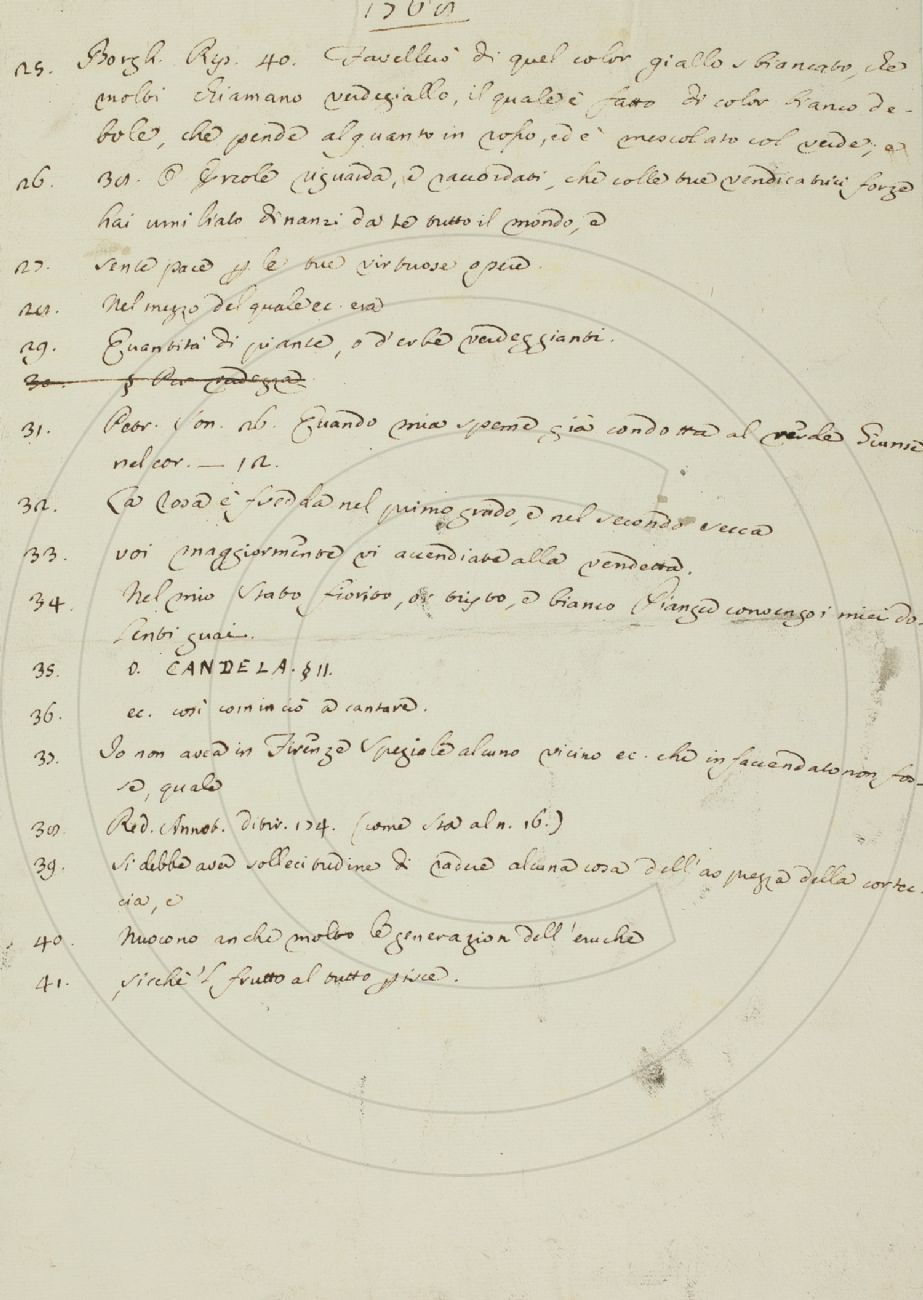 25. Borgh. Rip. 40. Favellerò di quel color giallo sbiancato, che
molti chiamano verdegiallo, il quale è fatto di color bianco de-
bole, che pende alquanto in rosso, ed è mescolato col verde; e
26. 38. O Ercole riguarda, e raccordati, che colle tue vendicatrici forze
hai umiliato dinanzi da te tutto il mondo, e
27. sente pace p le tue virtuose opere.
28. Nel mezzo del quale ec. era
29. Quantità di piante, o d'erbe verdeggianti.
30. § Per verdezza
31. Petr. Son. 26. Quando mia speme già condotta al verde Giunse
nel cor. — 12.
32. La rosa è fredda nel primo grado, e nel secondo secca
33. voi maggiormente vi accendiate alla vendetta.
34. Nel mio stato fiorito, or tristo, e bianco Pianger convengo i miei do-
lenti guai.
35. v. CANDELA. § II.
36. ec. così cominciò a cantare.
37. Io non avea in Firenze Speziale alcuno vicino ec. che infaccendato non fos-
se, quale
38. Red. Annot. ditir. 174. (come sta al n. 16.)
39. si debbe aver sollecitudine di radere alcuna cosa dell'asprezza della cortec-
cia, e
40. Nuocono anche molto le generazion dell'eruche
41. sicchè 'l frutto al tutto pisce.